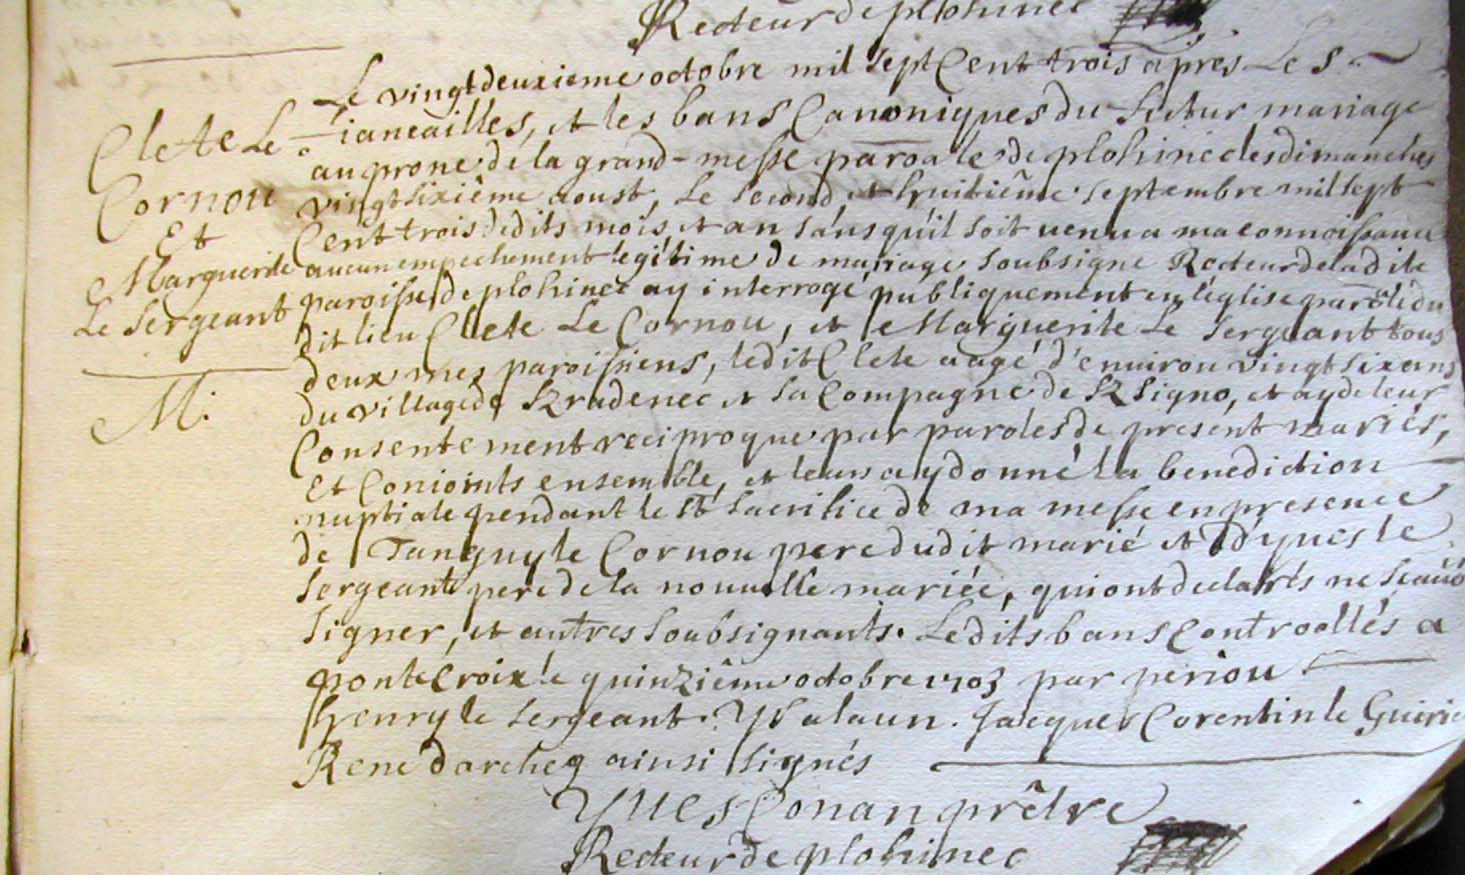 Recteur de plohinec
Le vingt deuxieme octobre mil sept Cent trois apres Les
Clete Le
fiancailles, et les bans Canoniques du futur mariage
au prone de la grand-messe paroale de plohinec les dimanches
Cornou
vingt sixiême aoust, Le second et huitiême septembre mil sept
Et
Cent trois dedits mois et an sans qu'il soit venu a ma connoissance
Marguerite
aucun empechement legitime de mariage soubsigne Recteur de ladite
Le Sergeant
paroisse de plohinec ay interrogé publiquement en l'eglise paro[iss]le du
dit lieu Clete Le Cornou, et Marguerite Le Sergeant tous
deux mes paroissiens, ledit Clete aagé d'environ vingt six ans
M.
du village de Kradenec et sa Compagne de Ksigno, et ay de leur
Consentement reciproque par paroles de present mariés,
Et Conioints ensemble, et leurs ay donné la benediction
nuptiale pendant le st sacrifice de ma messe en presence
de Tanguy le Cornou pere dudit marié et d'yves le
Sergeant pere de la nouvelle mariée, qui ont declarés ne
signer, et autres soubsignants. Ledits bans Controollés a
pontecroix le quinziême octobre 1703 par periou
henry le Sergeant. Y Salaun. Jacques Corentin le
René darcheq ainsi signés
Yves Conan prêtre
Recteur de plohinec